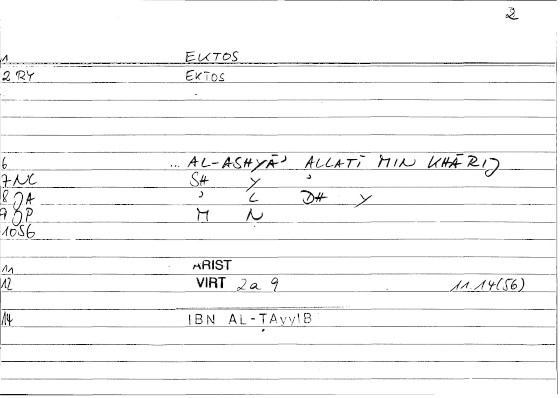 2
1 EKTOS
2 RY EKTOS
6 ... AL-ASHYĀʾ ALLATĪ MIN KHĀRIJ
7 NC SH Y ʾ
8 JA ʾ L DH Y
9 JP M N
10 SG
11 ARIST
12 VIRT 2a 9 11.14(56)
14 IBN AL-ṬAyyIB